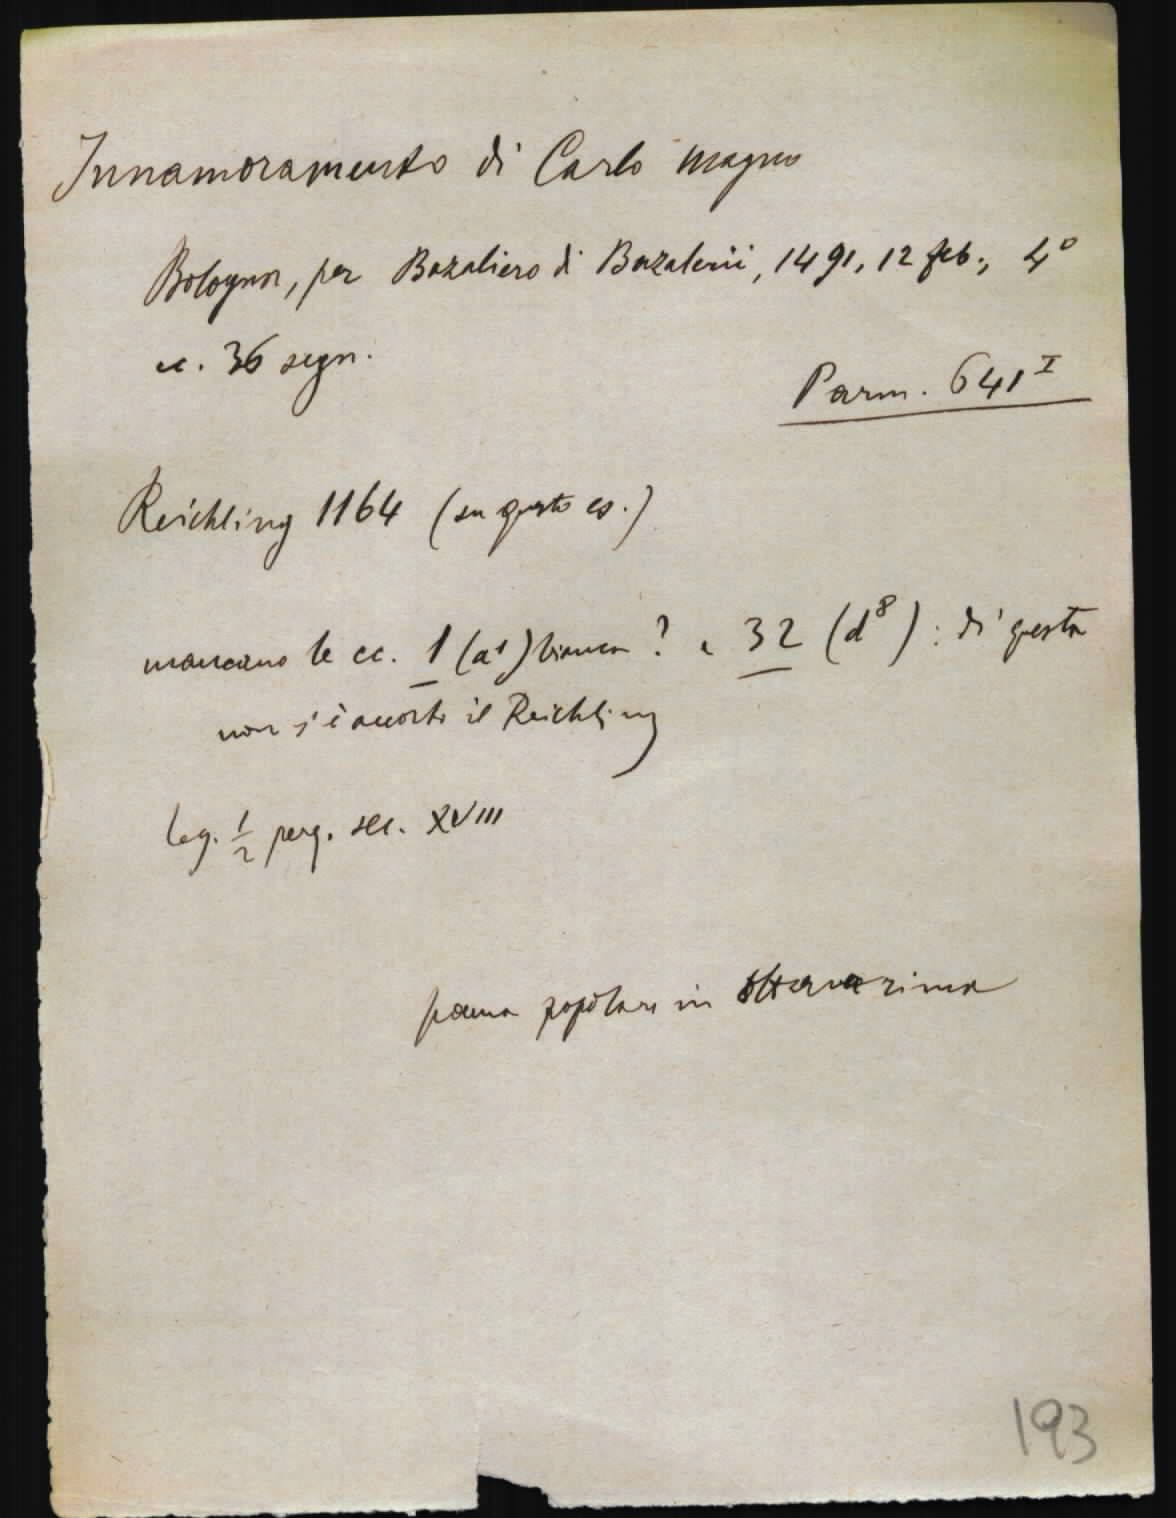 Innamoramento di Carlo magno
Bologna, per Bazaliero di Bazalerii, 1491, 12 feb., 4°
cc. 36 segn.
Parm. 641 I
Reichling 1164 (su questo es.)
mancano le cc. 1 (a1) bianca? e 32 (d8): di questa
non s'è accorto il Reichling
leg. 1/2 perg. sec. XVIII
poema popolare in ottava rima
193